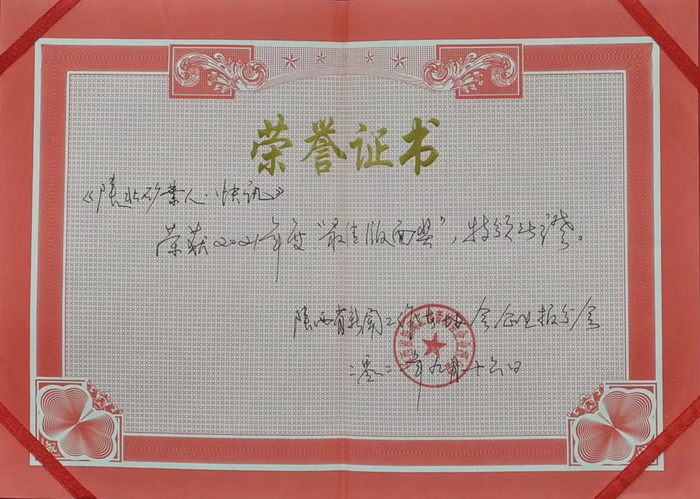 荣誉证书
《陕北矿业人·快讯》
荣获2021年度"最佳版面奖",特颁此证。
陕西省新闻工作者协会企业报分会
二零二二年九月十六日